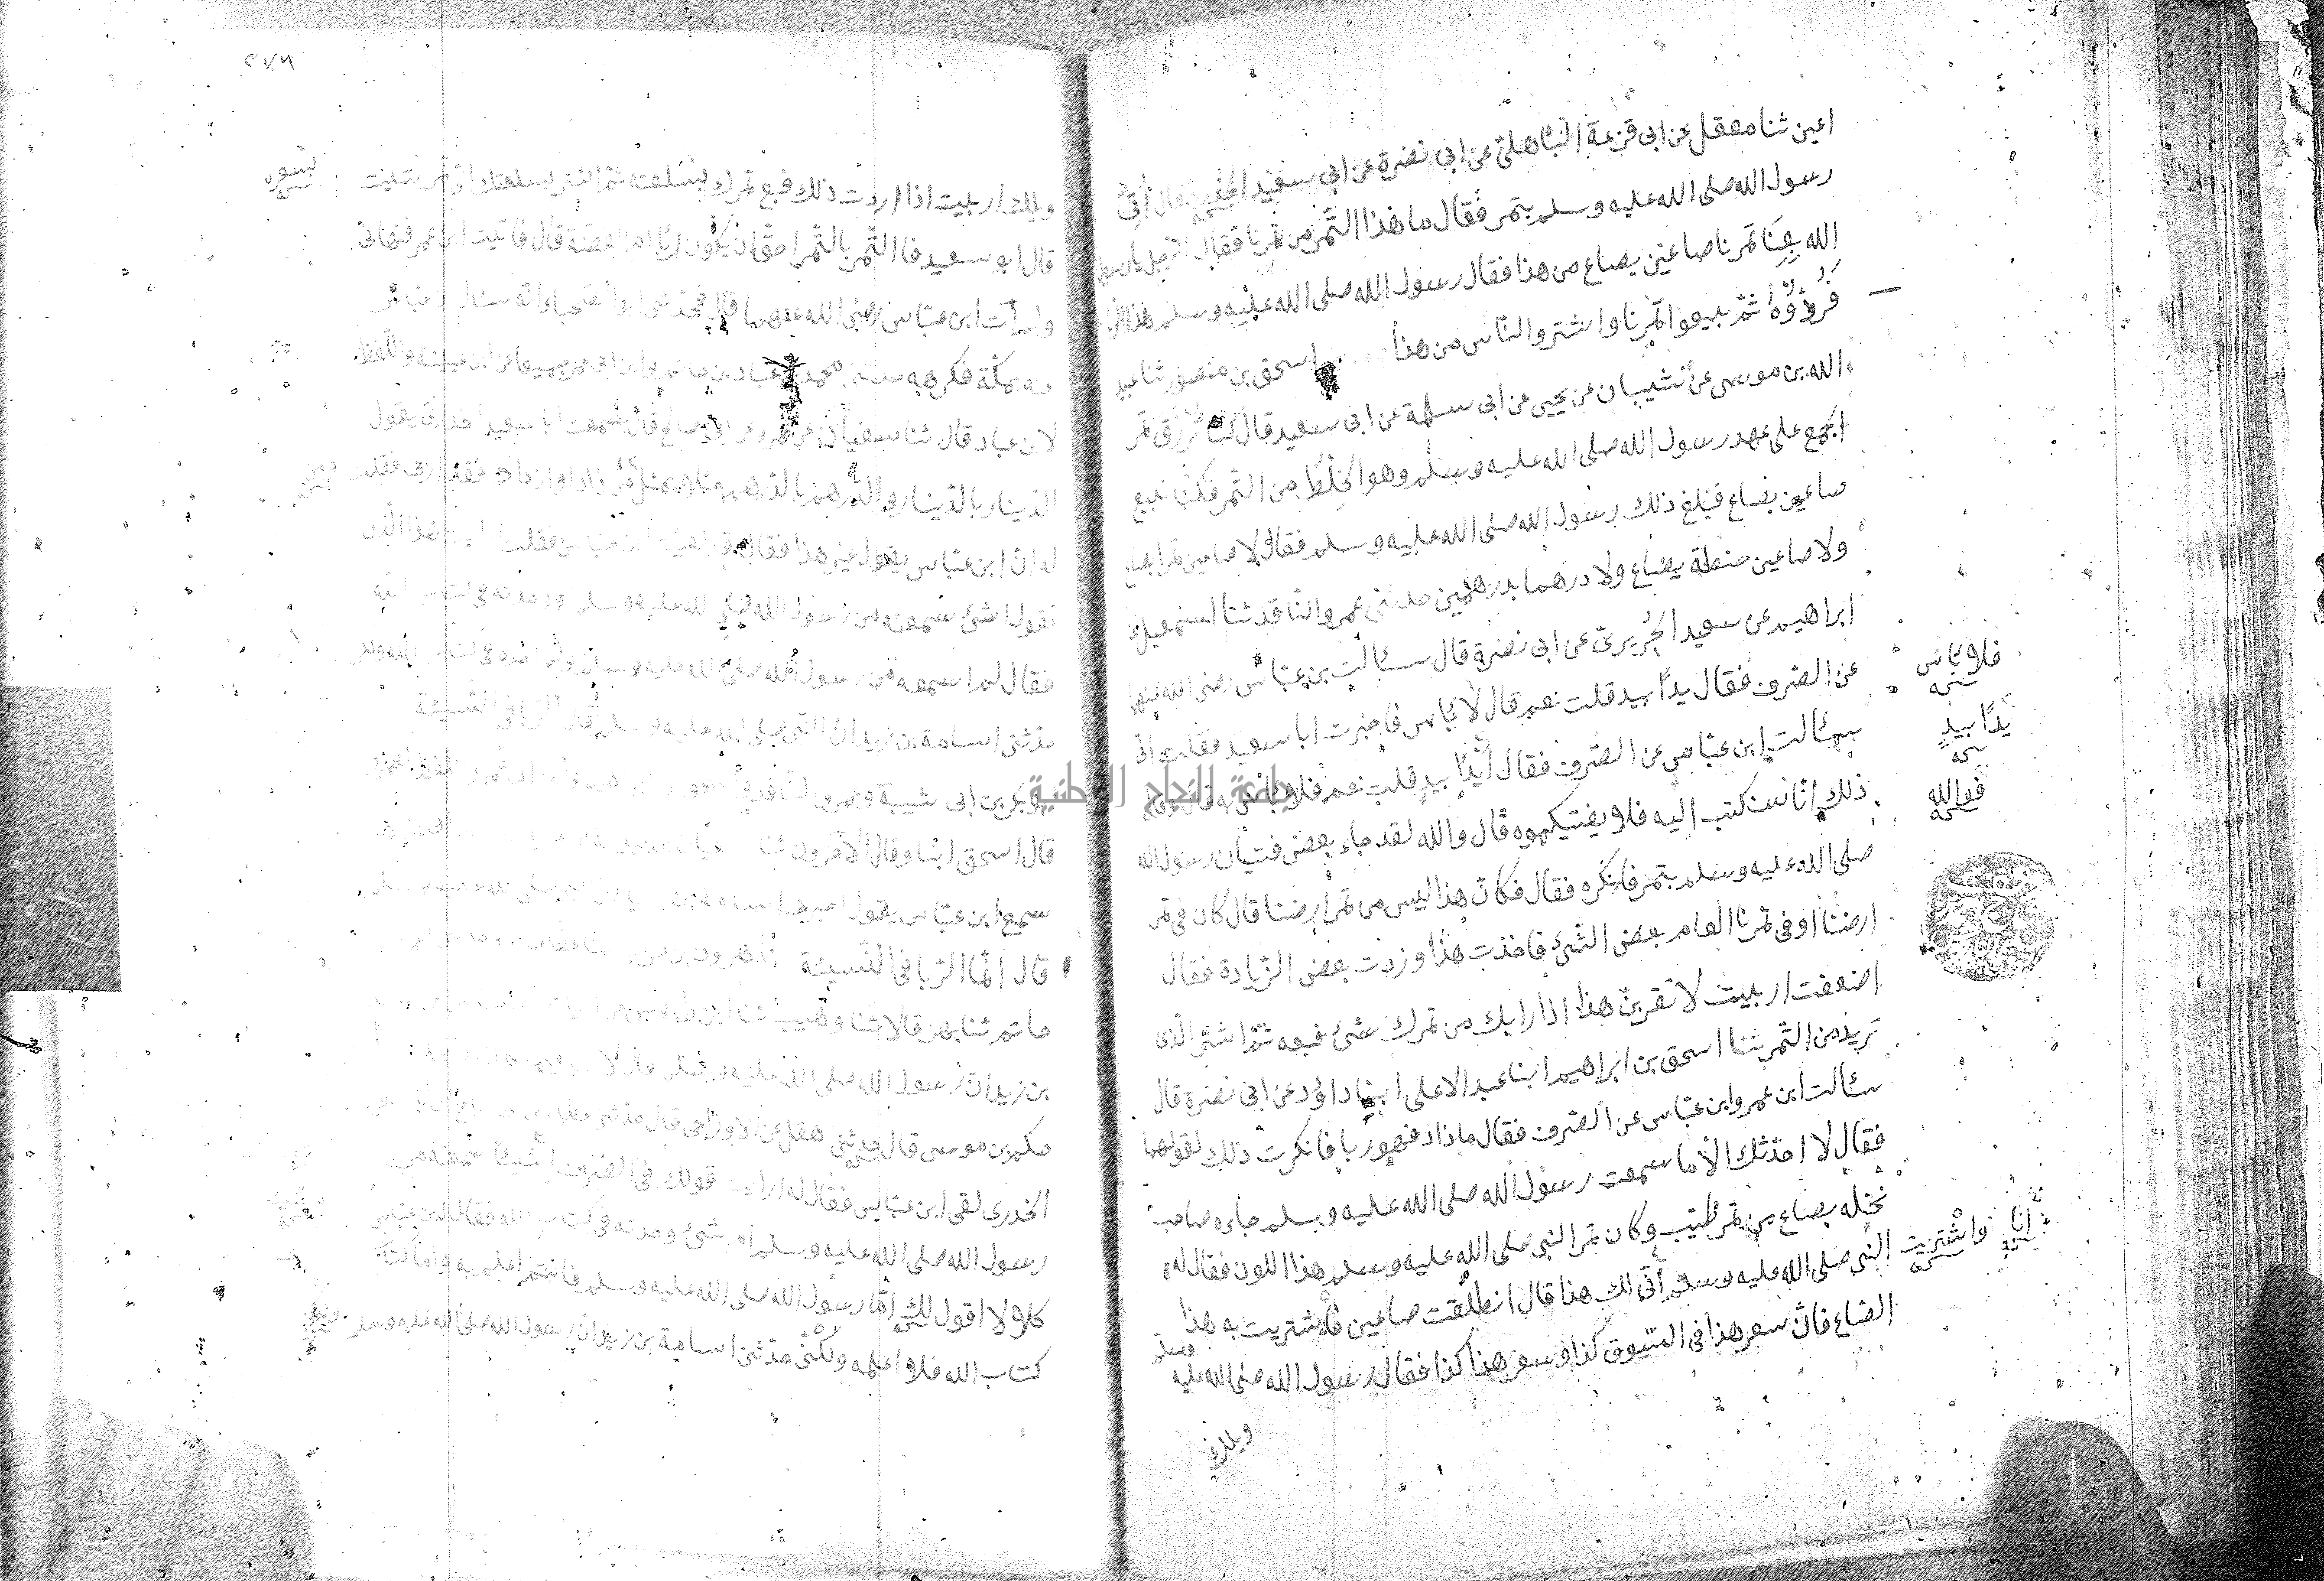 اعين ثنا معقل عن ابى قزعة الباهلى عن ابى نضرة عن ابى سعيد الخدرى قال اُتِىَ
رسول الله صلى الله عليه وسلم بتمر فقال ما هذا التمر من تمرنا فقال الرجل يا رسول
الله بِعنَا تمرنا صاعين بصاع من هذا فقال رسول الله صلى الله عليه وسلم هذا الربا
فَرُدُّوْهُ ثمّ بيعوا تمرنا واشتروا لناس من هذا اسحق بن منصور ثنا عبيد
الله بن موسى عن شيبان عن يحيى عن ابى سلمة عن ابى سعيد قال كنا نرزق تمر
الجمع على عهد رسول الله صلى الله عليه وسلم وهو الخِلْطُ من التمر فكنّا نبيع
صاعين بصاع فبلغ ذلك رسول الله صلى الله عليه وسلم فقال لا صاعين تمرا بصاع
ولا صاعين حنطة بصاع ولا درهما بدرهمين حدثنى عمرو الناقد ثنا اسمعيل بن
ابراهيم عن سعيد الجُريرىّ عن ابى نضرة قال سئالت بن عبّاس رضى الله عنهما
عن الصرف فقال يدًا بيد قلت نعم قال لا بأس فاخبرت ابا سعيد فقلت انّى
سئالت ابن عبّاس عن الصرف فقال أيَدًا بيد قلت نعم فلا بأس به قال اوقال
ذلك انّا سنكتب اليه فلا يفتيكموه قال والله لقد جاء بعض فتيان رسول الله
صلى الله عليه وسلم بتمر فانكره فقال فكانّ هذا ليس من تمر ارضنا قال كان فى تمر
ارضنا او فى تمرنا العام بعض الشئ فاخذت هذا وزدت بعض الزّيادة فقال
اضعفت اربيت لا تقربنّ هذا اذا رابك من تمرك شئ فبعه ثمّ اشتر الّذى
تريد من التمر ثنا اسحق بن ابراهيم ابنا عبد الاعلى ابنا داؤد عن ابى نضرة قال
سئالت ابن عمر وابن عبّاس عن الصرف فقال ما زاد فهو ربا فانكرت ذلك لقولهما
فقال لا احدّثك الّا ما سمعت رسول الله صلى الله عليه وسلم جاءه صاحب
نخله بصاع من تمر طيّب وكان تمر النبى صلى الله عليه وسلم هذا اللون فقال له
النبى صلى الله عليه وسلم انّى لك هذا قال انطلقت صاعين فاشتريت به هذا
الصاع فانّ سعر هذا فى السّوق كذا وسعر هذا كذا فقال رسول الله صلى الله عليه
وسلم
ويلك
فلا بأس
يدًا بيدٍ
فوالله
انا
واشتريت
٢٧٨
ويلك اربيت اذا اردت ذلك فبع تمرك بسلعة ثمّ اشتر بسلعتك اىّ تمر شئت
بسعره
قال ابو سعيد فا التّمر بالتّمر احقّ ان يكون ربًا ام الفضّة قال فاتيت ابن عمر فنهانى
ولم آت ابن عبّاس رضى الله عنهما قال فحدثنى ابو الصهباء انه سئال ابن عباس
عنه بمكّة فكرهه حدثنى محمد بن عباد بن حاتم وابن ابى عمر جميعا عن ابن عيينة واللفظ
لابن عباد قال ثنا سفيان عن عمرو عن ابى صالح قال سمعت ابا سعيد الخدرى يقول
الدّينار بالدّينار والدّرهم بالدّرهم مثلا بمثل من زاد او ازداد فقد اربى فقلت
له انّ ابن عبّاس يقول غير هذا فقال لقد لقيت ابن عباس فقلت ارايت هذا الذى
تقول اشئ سمعته من رسول الله صلى الله عليه وسلم ووجدته فى كتاب الله
فقال لم اسمعه من رسول الله صلى الله عليه وسلم ولم اجده فى كتاب الله ولكن
حدّثنى اسامة بن زيد انّ النّبى صلى الله عليه وسلم قال الرّبا فى النّسيئة
ابو بكر بن ابى شيبة وعمرو الناقد واللفظ لعمرو
قال اسحق ابنا وقال الآخرون ثنا سفيان
سمع ابن عبّاس يقول اخبرنى اسامة بن زيد انّ النبى صلى الله عليه وسلم
قال انّما الرّبا فى النّسيئة
حاتم ثنا بهز قالا ثنا وهيب ثنا ابن طاوس عن ابيه
بن زيد انّ رسول الله صلى الله عليه وسلم قال لا
حكم بن موسى قال حدثنى هقل عن الاوزاعى قال حدّثنى عطاء بن
الخدرى لقى ابن عبّاس فقال له ارايت قولك فى الصّرف اشيئًا سمعته من
رسول الله صلى الله عليه وسلم ام شئ وجدته فى كتاب الله فقال ابن عبّاس
كلّا لا اقول لك امّا رسول الله صلى الله عليه وسلم فانتم اعلم به وامّا كتاب
كتاب الله فلا اعلمه ولكنّى حدّثنى اسامة بن زيد انّ رسول الله صلى الله عليه وسلم
جامعة النجاح الوطنية